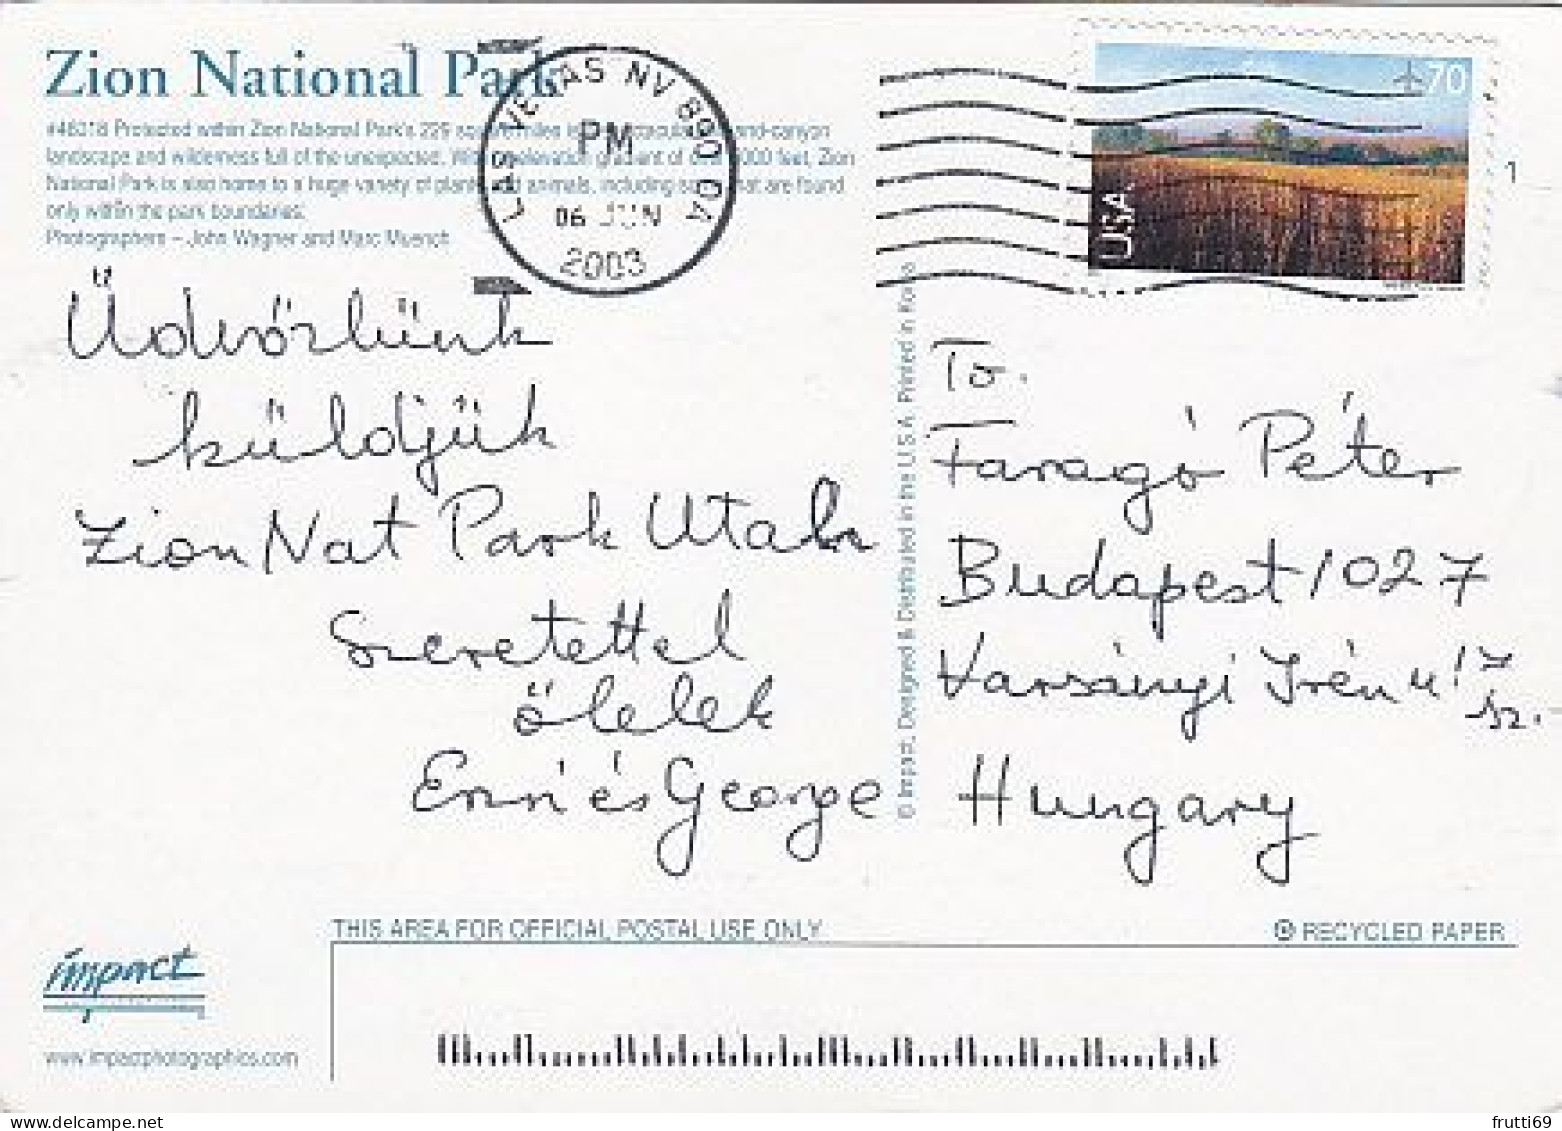 Zion National Park
#46018 Protected within Zion National Park's 229 square miles is a spectacular and-canyon
landscape and wilderness full of the unexpected. With elevation gradient of 000 feet, Zion
National Park is also home to a huge variety of plants and animals, including some that are found
only within the park boundaries.
Photographers – John Wagner and Marc Muench
LAS VEGAS NV 890 DA
PM
06 JUN
2003
70
USA
1
Üdvözlünk
küldjük
Zion Nat Park Utah
Szeretettel
ölelek
Ernri és George
© Impact, Designed & Distributed in the U.S.A. Printed in Korea
To.
Faragó Péter
Budapest 1027
Varsányi Irén u 17
sz.
Hungary
THIS AREA FOR OFFICIAL POSTAL USE ONLY
RECYCLED PAPER
impact
www.impactphotographics.com
frutti69